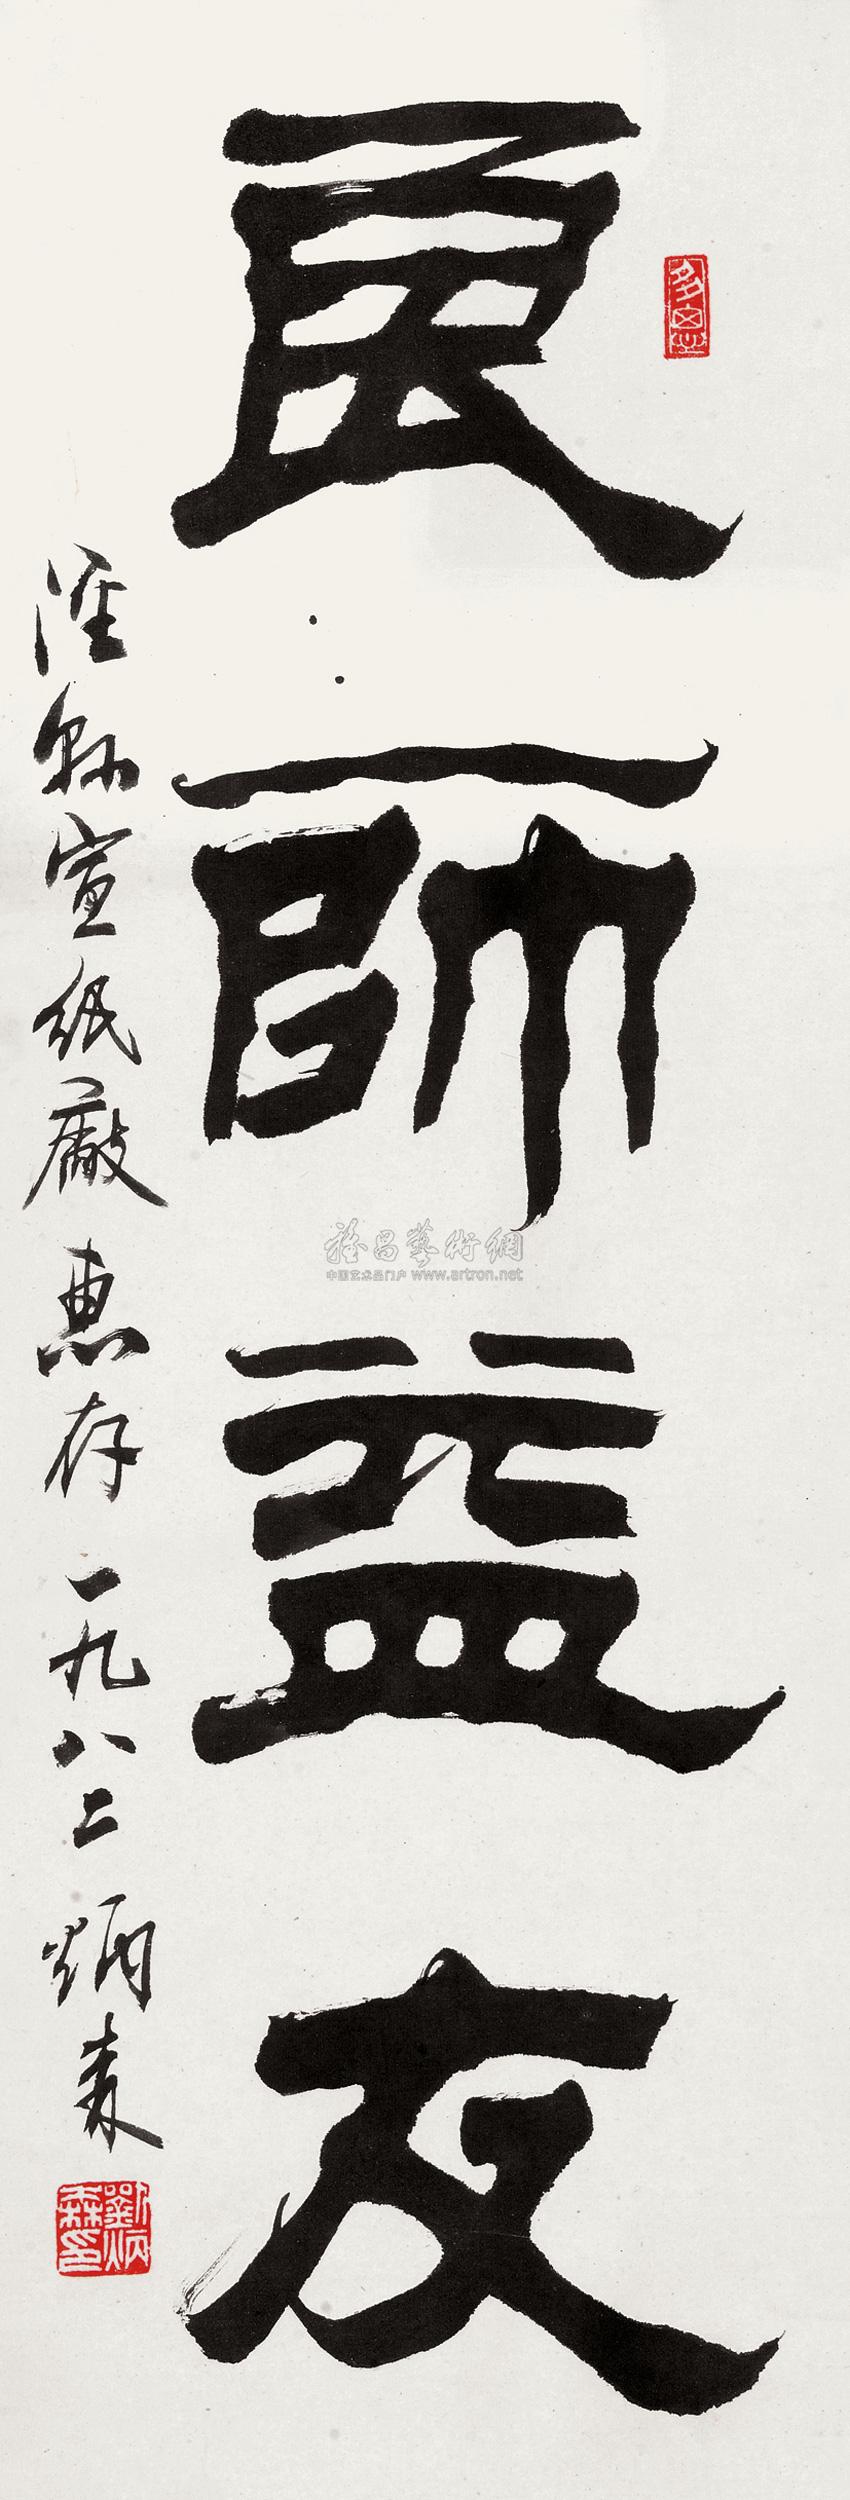 良師益友
涇縣宣紙廠惠存 一九八二 炳森
劉炳森印
雅昌藝術網
中国艺术品门户 www.artron.net